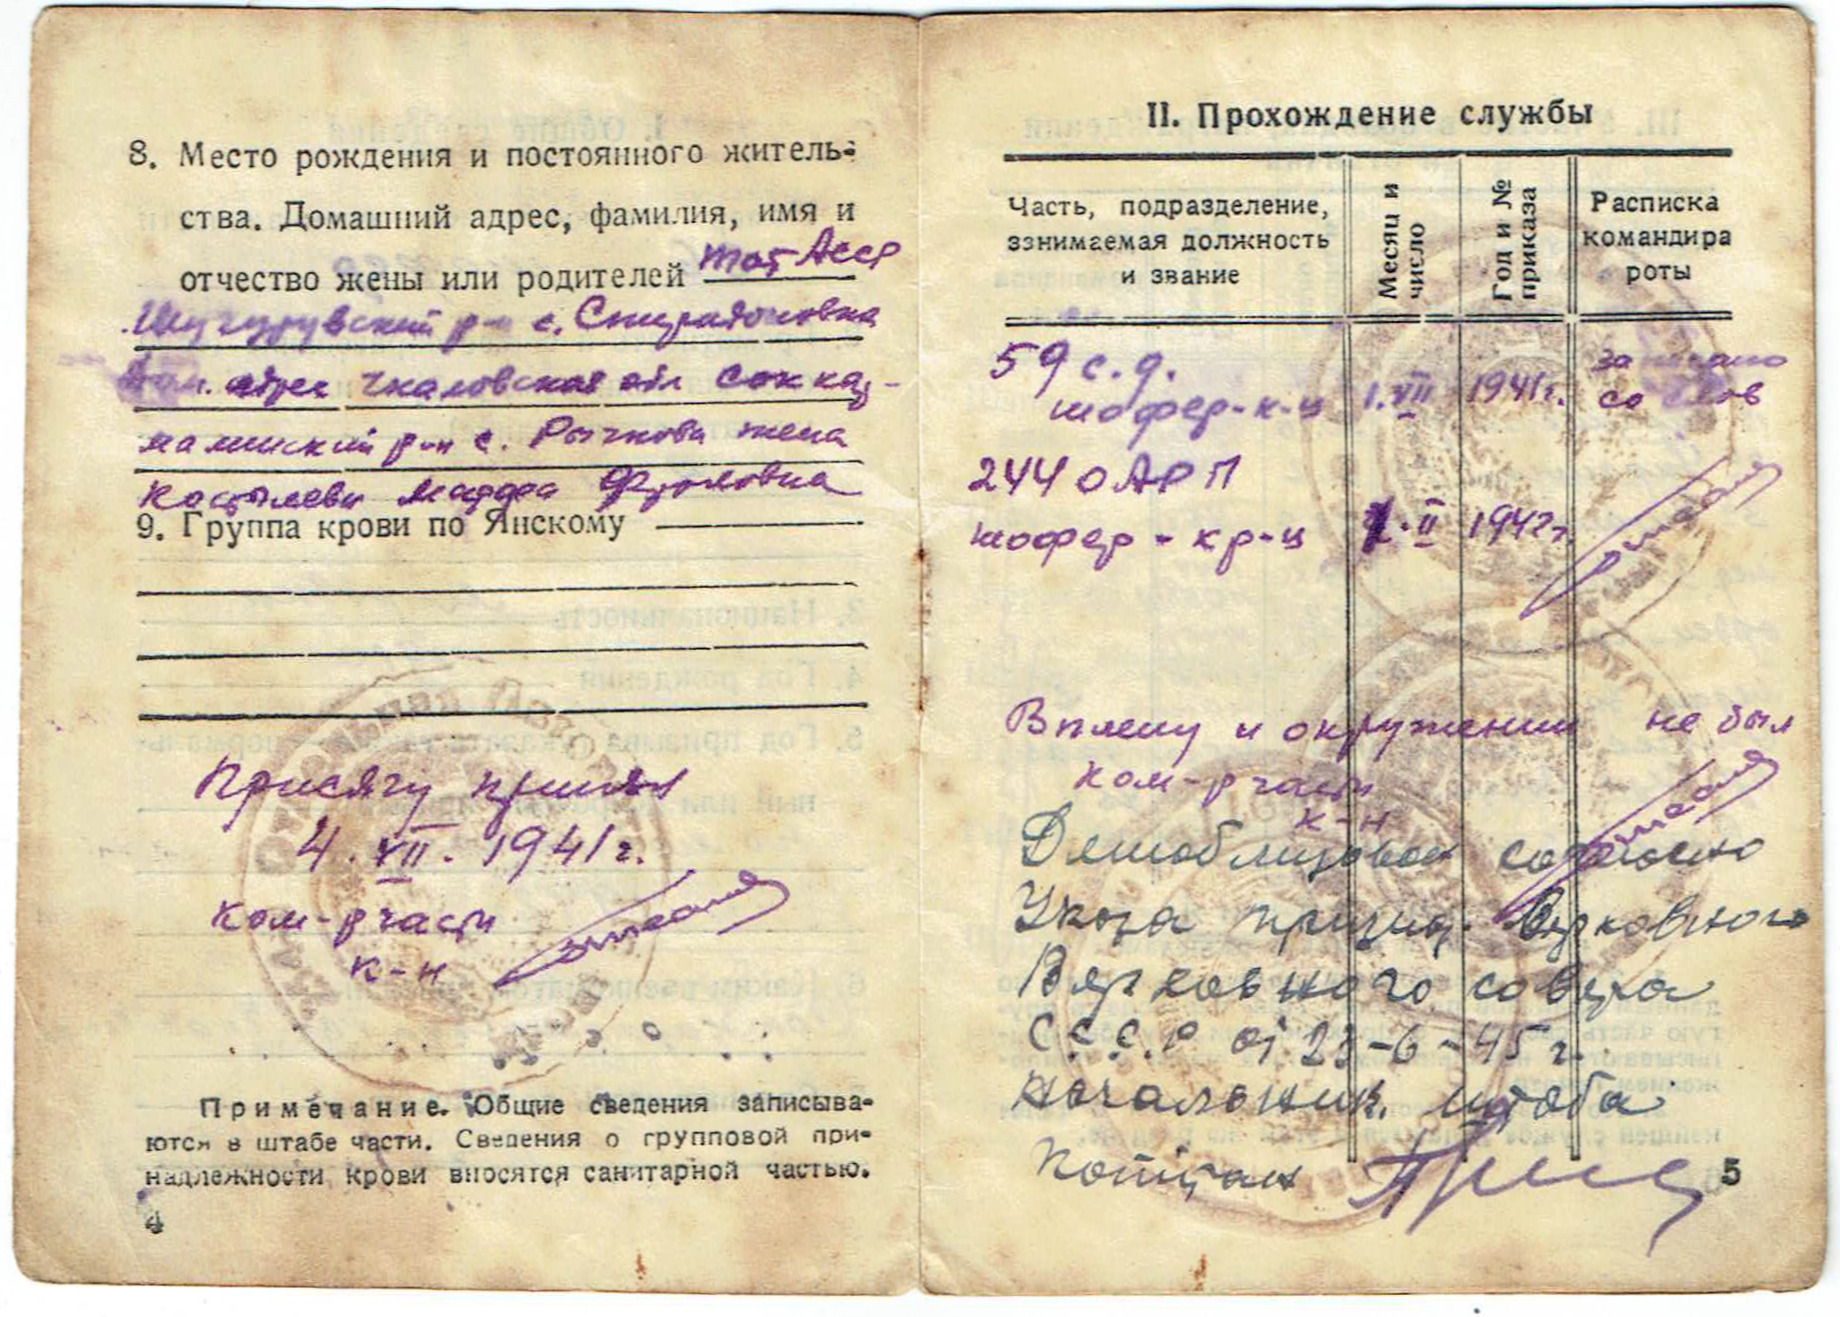 8. Место рождения и постоянного житель-
ства. Домашний адрес, фамилия, имя и
отчество жены или родителей Тат Асср
Шугуровский р-н с. Спиридоновка
Дом. адрес Чкаловская обл Соккар-
мамиский р-н с. Рычкова жена
Костылева Марфа Фроловна
9. Группа крови по Янскому
Присягу принял
4. VII. 1941 г.
Ком-р части
к-н
Примечание. Общие сведения записыва-
ются в штабе части. Сведения о групповой при-
надлежности крови вносятся санитарной частью.
4
II. Прохождение службы
Часть, подразделение, занимаемая должность и звание
Месяц и число
Год и № приказа
Расписка командира роты
59 с. д.
шофер-к-ц 1. VII 1941г. записано со слов
244 ОАРП
шофер - кр-ц 1. II 1942г.
В плену и окружении не был
Ком-р части
к-н
Демобилизован согласно
Указа призид. Верховного
Верховного совета
С.С.С.Р от 23-6-45 г.
Начальник. штаба
Капитан
5